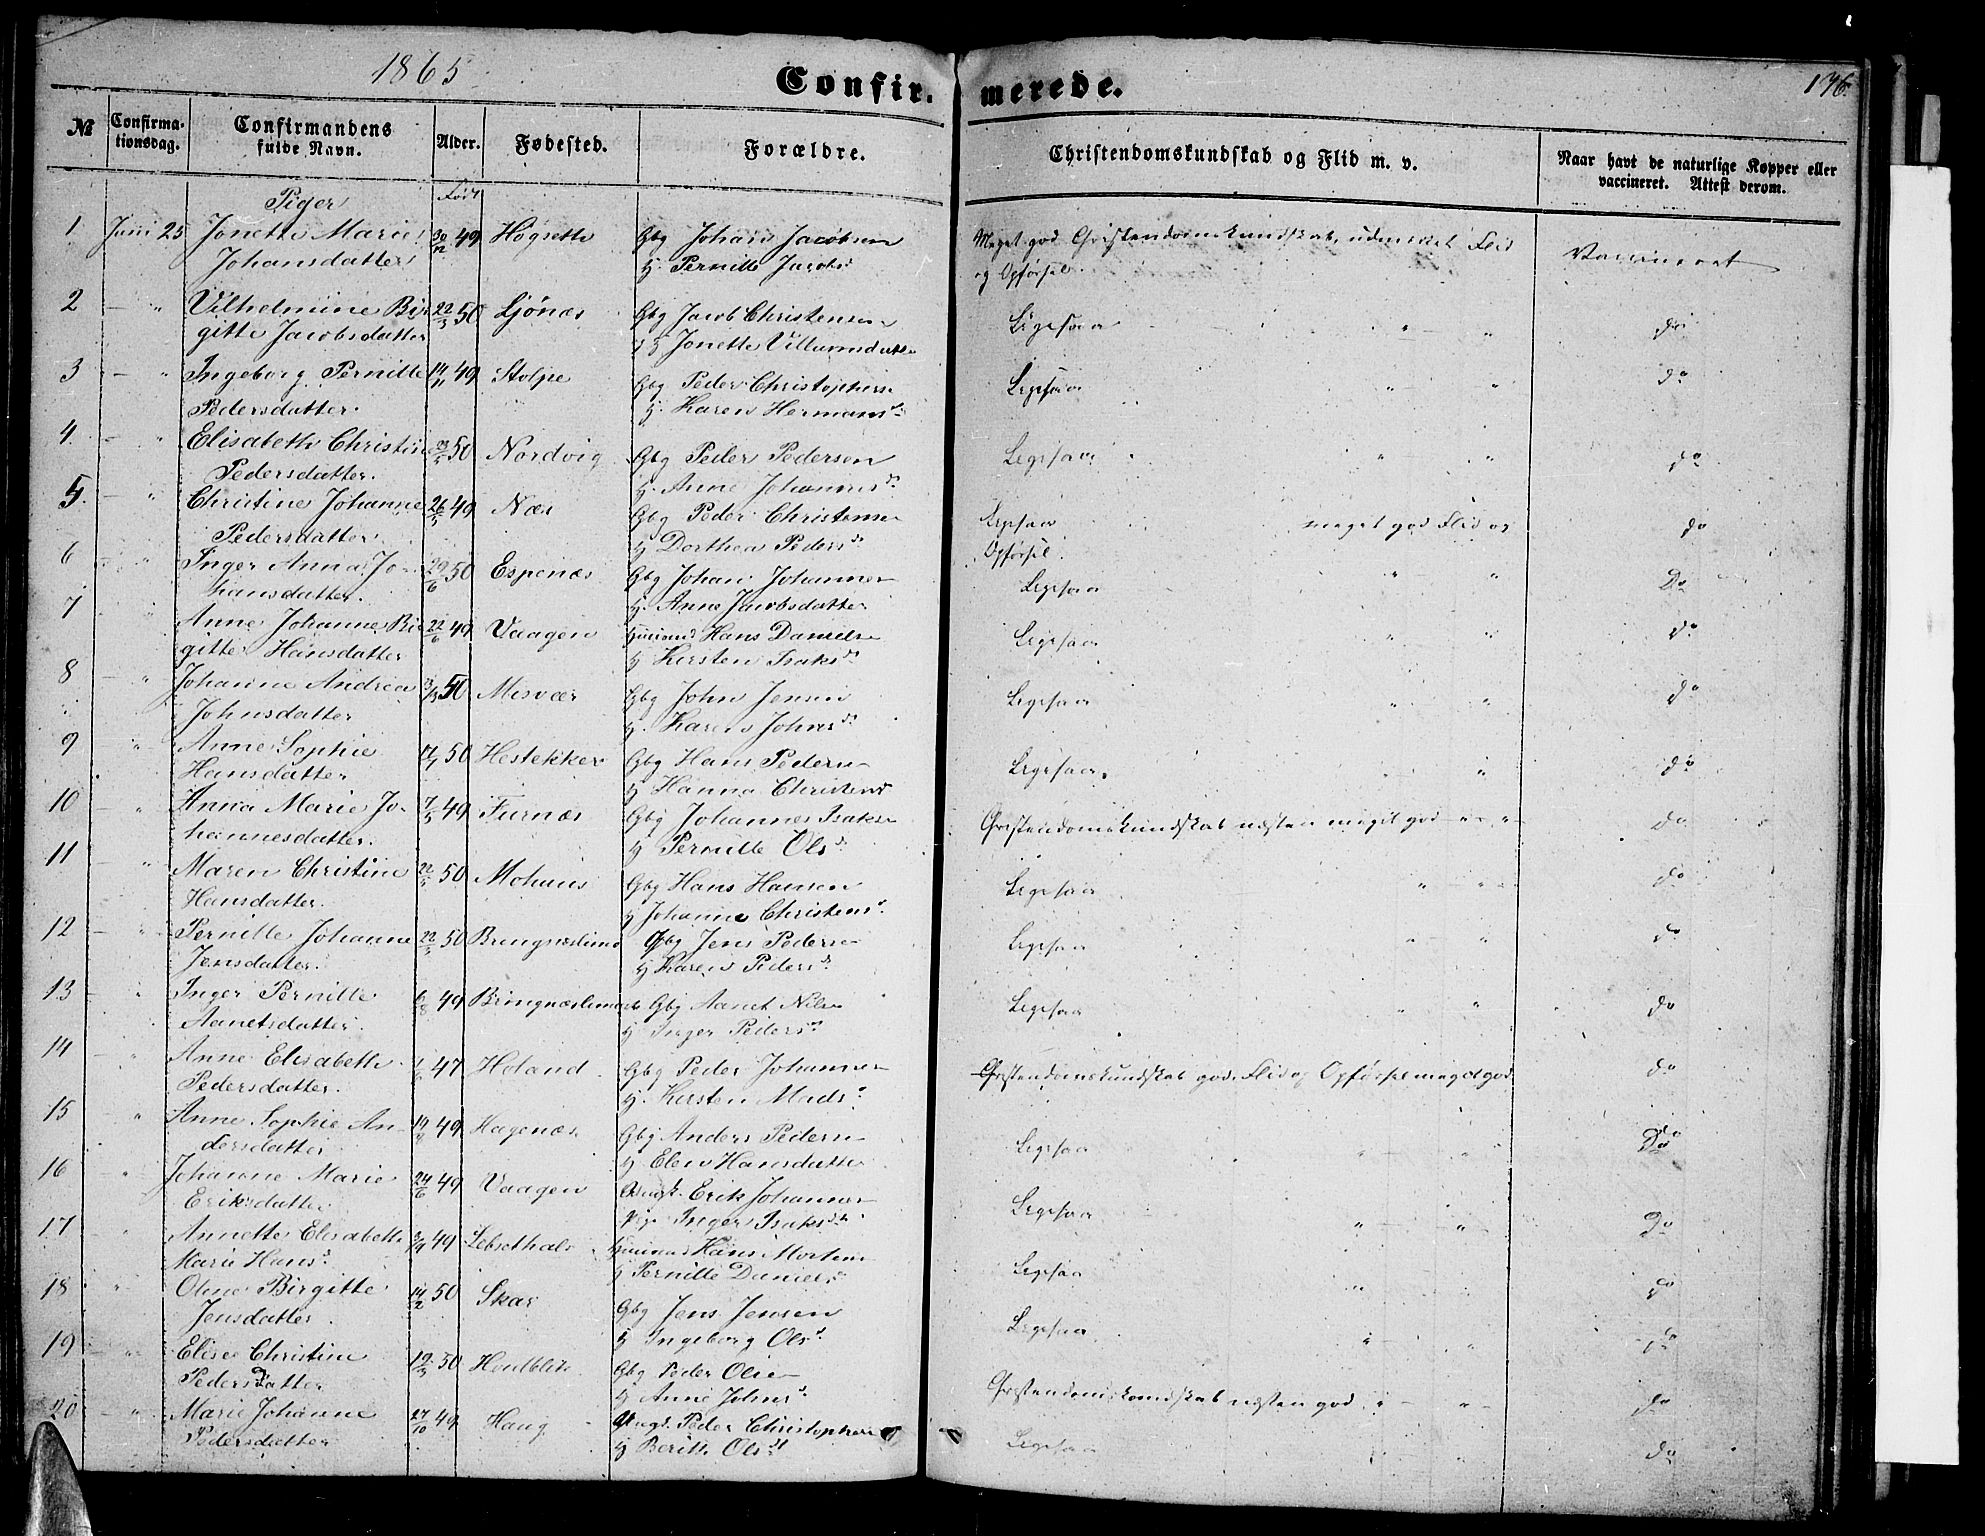 1865
Confir-
merede.
176.
№
Confirma-
tionsdag.
Confirmandens
fulde Navn.
Alder.
Fødested.
Forældre.
Christendomskundskab og Flid m. v.
Naar havt de naturlige Kopper eller
vaccineret. Attest derom.
Piger
Født
1 Juni 25 Jonette Marie 30/12 49 Høgsette Gbg Johan Jacobsen Meget god Christendomskundskab, udmærket Flid Vaccineret
Johansdatter H. Pernille Jacobsd og Opførsel.
2 — " Vilhelmine Bir 22/5 50 Ljønæs Gbg Jacob Christensen Ligesaa " — " do
gitte Jacobsdatter Jonette Villumsdatter
3 — " Ingeborg Pernille 14/11 49 Stolpe Gbg Peder Christophers Ligesaa " — " do
Pedersdatter. H. Karen Hermansd.
4. — " Elisabeth Christine 50 Nordvig Gbg Peder Pedersen Ligesaa " " do
Pedersdatter. H. Anne Johannesd.
5. — " Christine Johanne 26/5 49 Næs Gbg Peder Christense Ligesaa meget god Flid og do
Pedersdatter. H Dorthea Pedersd. Opførsel.
6 — Inger Anna Jo- 29/6 50 Espenæs Gbg Johan Johannes Ligesaa " " Do
hansdatter. H. Anne Jacobsdatter
7 " Anne Johanne Bir 22/6 49 Vaagen Huusmand Hans Daniels Ligesaa " " do
gitte Hansdatter H Kirsten Isaksd.
8 " Johanne Andrea 50 Misvær Gbg John Jensen Ligesaa " " do
Johnsdatter H. Karen Johnsd.
9 " Anne Sophie 50 Hestekker Gbg Hans Pederse Ligesaa. " do
Hansdatter H Hanna Christensd
10 " Anna Marie Jo- 7/5 49 Furnæs Gbg Johannes Isakse Christendomskundskab næsten meget god — " — " — do
hannesdatter. H Pernille Olsd.
11 " Maren Christine 22/5 50 Mohuus Gbg Hans Hansen Ligesaa " " do
Hansdatter. H Johanne Christensd.
12 — " Pernille Johanne 22/5 50 Bringnæslimo Gbg Jens Pederse Ligesaa " — " do
Jensdatter. H Karen Pedersd.
13 — " Inger Pernille 6/8 49 Bringnæslimo Gbg Aanet Nilse Ligesaa " do
Aanetsdatter. H Inger Pedersd.
14 — " Anne Elisabeth 1/6 47 Holand Gbg Peder Johannes Christendomskundskab god. Flid og Opførsel meget god do
Pedersdatter. H. Kirsten Madsd.
15 " Anne Sophie An- 19/8 49 Hagenæs Gbg Anders Pederse Ligesaa " — " do
dersdatter H Elen Hansdatte Do
16 " Johanne Marie 24/6 49 Vaagen Erik Johannes Ligesaa " — " Do
Eriksdatter Inger Isaksd.
17 " Annette Elisabeth 49 Huusmand Hans Mortens Ligesaa do
Marie Hansd. H Pernille Danielsd.
18 " Oline Birgitte 14/2 50 Skar Gbg Jens Jensen Ligesaa " — " do
Jensdatter. H Ingeborg Olsd.
19 — " Elise Christine 19/3 50 Gbg Peder Olse Christendomskundskab næsten god " — " — do
Pedersdatter H Anne Johnsd.
20 — " Marie Johanne 27/10 49 Haug Peder Christophers Ligesaa " " do
Pedersdatter H Berith Olsd.